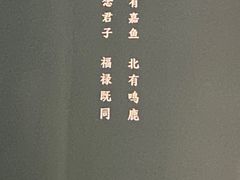 有嘉鱼 北有鸣鹿
君子 福禄既同